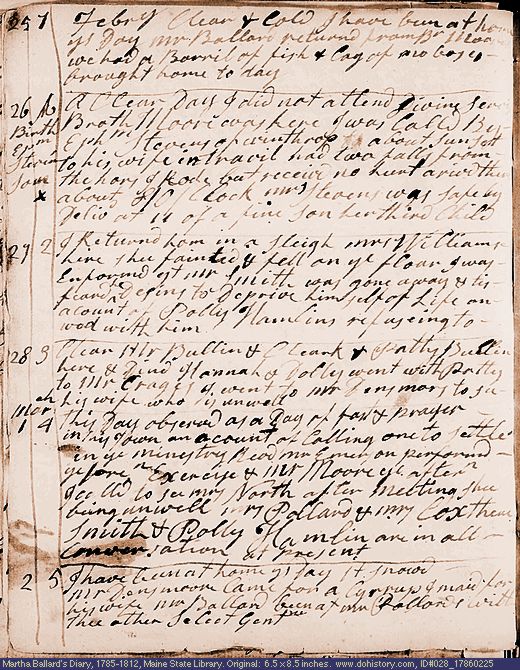 25 7 Febry Clear & Cold I have been at home
ys Day mr Ballard returnd from Br Moors
we had a Barril of fish & Cag of
brought home to day
26 A Clear Day I did not attend Divine Servis
Birth Broth Moore was here I was Calld By
Ephm Ephm Stevens of winthrop about Sun sett
Stevins to his wife in travil had two falls from
Son the hors I rode but receivd no hurt arivd there
x about O Clock mrs Stevens was safe by
Deliv at 11 of a fine son her third Child
27 2 I Returnd hom in a sleigh mrs Williams
here shee fainted & fell on ye floar I was
Enformd yt mr Smith was gone away & tis
feard he Desins to Deprive himself of Life on
acount of Polly Hamlins refuseing to
wed with him
28 3 Clear Mr Bullin & Cleark & Patty Bullin
here & Dind Hannah & Dolly went with Patty
to Mr Crages I went to mr Densmors to se
his wife who is unwell
March
1 4 this Day observed as a Day of fast & prayer
in this Town on account of Calling one to settle
in ye ministry Revd mr Emerson performd
ye fore n Exercise & Mr Moore ye aftern
I calld to see mrs North after meeting shee
being unwell mrs Pollard & mrs Cox there
Smith & Polly Hamlin are in all
Conversation at present
2 5 I have been at home ys Day it snowd
mr Densmoore Came for a Cyrrup I maid for
his wife mr Ballard been at mr Pollard s with
thee other Select Gentmn
Martha Ballard's Diary, 1785-1812, Maine State Library. Original: 6.5 x 8.5 inches. www.dohistory.com, ID#028_17860225